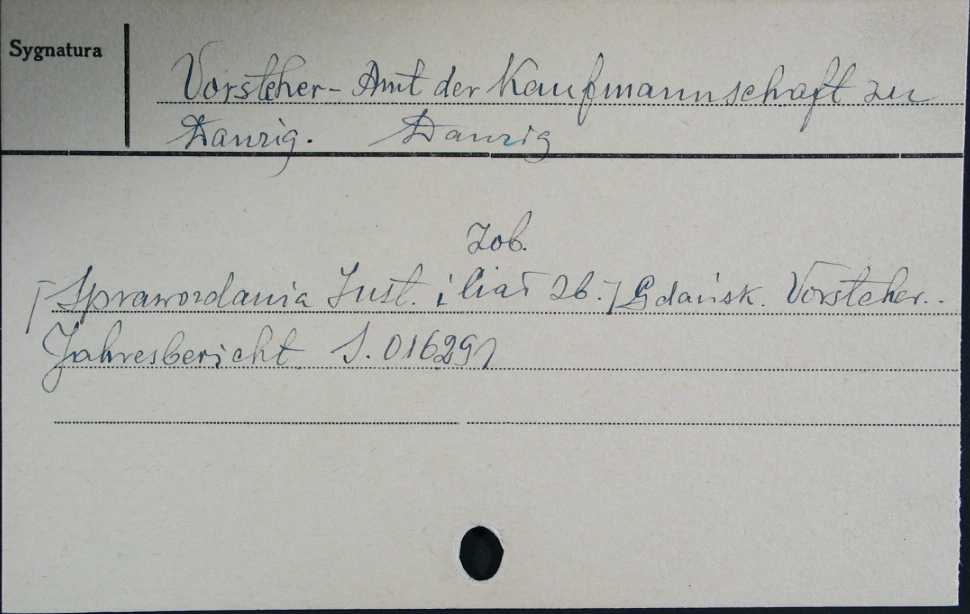 Sygnatura
Vorsteher-Amt der Kaufmannschaft zu
Danzig. Danzig
Zob.
[Sprawozdania Inst. i liai zb.] Gdańsk. Vorsteher..
Jahresbericht S. 016291